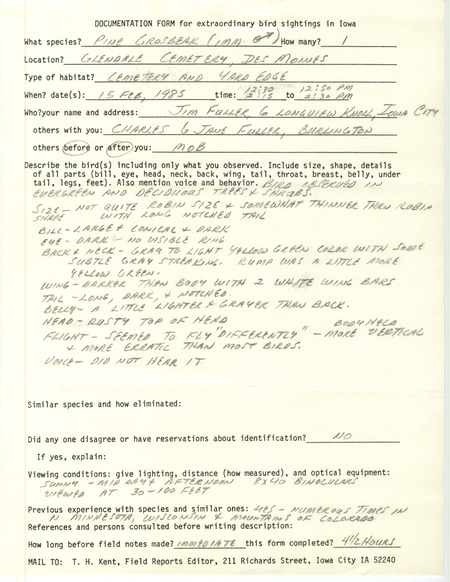 DOCUMENTATION FORM for extraordinary bird sightings in Iowa
What species? PINE GROSBEAK (IMM. ♂) How many? 1
Location? GLENDALE CEMETERY, DES MOINES
Type of habitat? CEMETERY AND YARD EDGE
12:30 12:50 PM
When? date(s): 15 FEB, 1985 time: 2:15 to 2:30 PM
Who?your name and address: JIM FULLER 6 LONGVIEW KNOLL, IOWA CITY
others with you: CHARLES & JANE FULLER, BURLINGTON
others before or after you: MOB
Describe the bird(s) including only what you observed. Include size, shape, details
of all parts (bill, eye, head, neck, back, wing, tail, throat, breast, belly, under
tail, legs, feet). Also mention voice and behavior. BIRD OBSERVED IN
EVERGREEN AND DECIDUOUS TREES & SHRUBS.
SIZE - NOT QUITE ROBIN SIZE & SOMEWHAT THINNER THAN ROBIN
SHAPE WITH LONG NOTCHED TAIL
BILL - LARGE & CONICAL & DARK
EYE - DARK - NO VISIBLE RING
BACK & NECK - GRAY TO LIGHT YELLOW GREEN COLOR WITH SOME
SUBTLE GRAY STREAKING. RUMP WAS A LITTLE MORE
YELLOW GREEN.
WING - DARKER THAN BODY WITH 2 WHITE WING BARS
TAIL - LONG, DARK, & NOTCHED
BELLY - A LITTLE LIGHTER & GRAYER THAN BACK.
HEAD - RUSTY TOP OF HEAD
BODY HELD
FLIGHT - SEEMED TO FLY "DIFFERENTLY" - MORE VERTICAL
& MORE ERRATIC THAN MOST BIRDS.
VOICE - DID NOT HEAR IT
Similar species and how eliminated:
Did any one disagree or have reservations about identification? NO
If yes, explain:
Viewing conditions: give lighting, distance (how measured), and optical equipment:
SUNNY - MID DAY & AFTERNOON 8X40 BINOCULARS
VIEWED AT 30-100 FEET
Previous experience with species and similar ones: YES - NUMEROUS TIMES IN
N. MINNESOTA, WISCONSIN & MOUNTAINS OF COLORADO
References and persons consulted before writing description:
How long before field notes made? IMMEDIATE this form completed? 4 1/2 HOURS
MAIL TO: T. H. Kent, Field Reports Editor, 211 Richards Street, Iowa City IA 52240